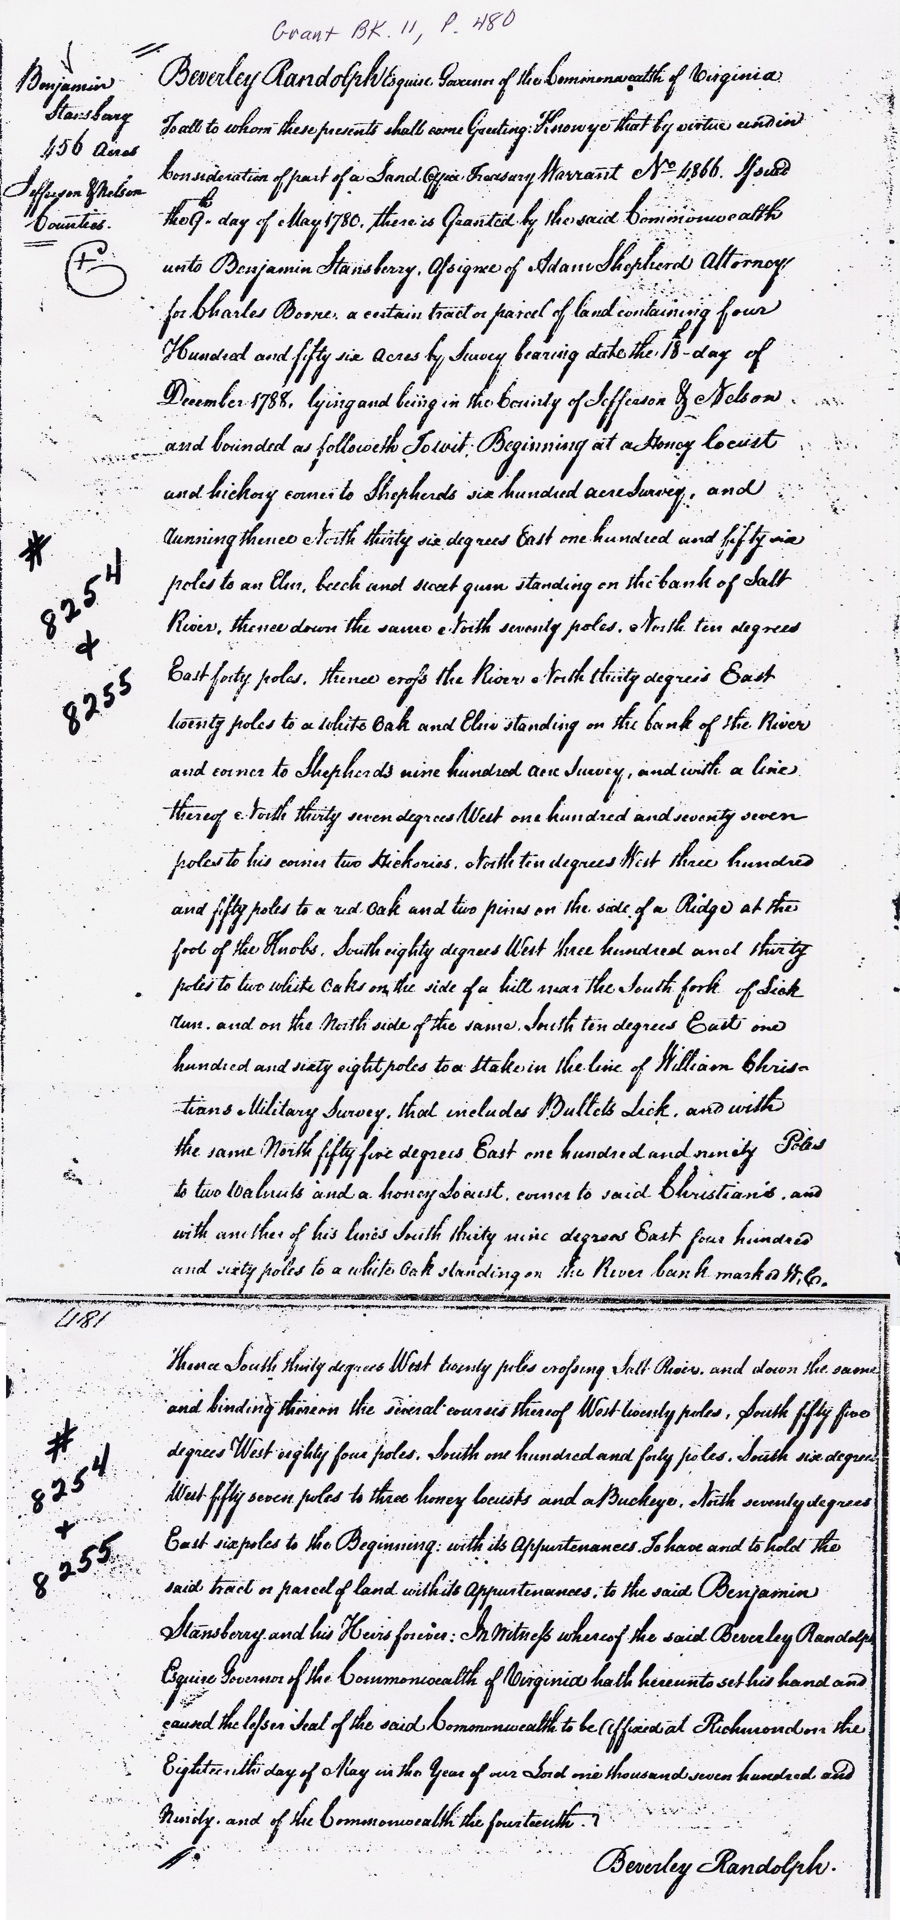 Grant BK. 11, P. 480
Benjamin
Stansbury
456 Acres
Jefferson & Nelson
Counties.
Beverley Randolph Esquire Governor of the Commonwealth of Virginia
To all to whom these presents shall come Greeting: Know ye that by virtue and in
Consideration of part of a Land Office Treasury Warrant No 4866. Issued
the 9th day of May 1780. there is Granted by the said Commonwealth
unto Benjamin Stansberry, Assignee of Adam Shepherd Attorney
for Charles Boone. a certain tract or parcel of land containing four
Hundred and fifty six acres by Survey bearing date the 18th day of
December 1788, lying and being in the County of Jefferson & Nelson
and bounded as followeth To wit; Beginning at a Honey locust
and hickory corner to Shepherds six hundred acre Survey, and
running thence North thirty six degrees East one hundred and fifty six
poles to an Elm, beech and sweet gum standing on the bank of Salt
River, thence down the same North seventy poles. North ten degrees
East forty poles. thence cross the River North thirty degrees East
twenty poles to a white Oak and Elm standing on the bank of the River
and corner to Shepherds nine hundred acre Survey, and with a line
thereof North thirty seven degrees West one hundred and seventy seven
poles to his corner two Hickories. North ten degrees West three hundred
and fifty poles to a red Oak and two pines on the side of a Ridge at the
foot of the Knobs. South eighty degrees West three hundred and thirty
poles to two white Oaks on the side of a hill near the South fork of Lick
run. and on the North side of the same. South ten degrees East one
hundred and sixty eight poles to a stake in the line of William Chris-
tians Military Survey, that includes Bullets Lick, and with
the same North fifty five degrees East one hundred and ninety Poles
to two Walnuts and a honey Locust. corner to said Christian's. and
with another of his lines South thirty nine degrees East four hundred
and sixty poles to a white Oak standing on the River bank marked W.C.
#
8254
+
8255
481
Thence South thirty degrees West twenty poles crossing Salt River. and down the same
and binding thereon the several courses thereof West twenty poles, South fifty five
degrees West eighty four poles. South one hundred and forty poles. South six degrees
West fifty seven poles to three honey locusts and a Buckeye, North seventy degrees
East six poles to the Beginning: with its Appurtenances. To have and to hold the
said tract or parcel of land with its Appurtenances, to the said Benjamin
Stansberry and his Heirs forever: In Witness whereof the said Beverley Randolph
Esquire Governor of the Commonwealth of Virginia hath hereunto set his hand and
caused the lesser Seal of the said Commonwealth to be Affixed at Richmond on the
Eighteenth day of May in the Year of our Lord one thousand seven hundred and
Ninety. and of the Commonwealth the fourteenth.
Beverley Randolph.
#
8254
+
8255